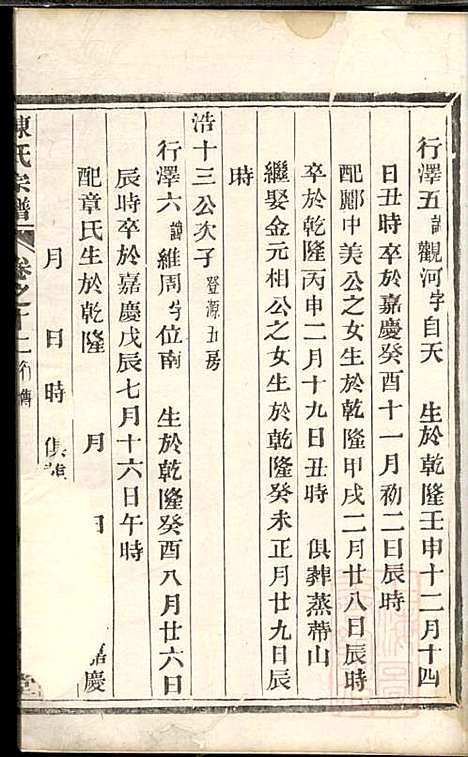 行澤五諱觀河字自天 生於乾隆壬申十二月十四
日丑時卒於嘉慶癸酉十一月初二日辰時
配酈中美公之女生於乾隆甲戌二月廿八日辰時
卒於乾隆丙申二月十九日丑時 俱葬蒸蔕山
繼娶金元相公之女生於乾隆癸未正月廿九日辰
時
浩十三公次子登源五房
行澤六諱維周字位南 生於乾隆癸酉八月廿六日
辰時卒於嘉慶戊辰七月十六日午時
配章氏生於乾隆 月 日 嘉慶
月 日 時 俱葬
陳氏宗譜 卷之十二 行傳 堂